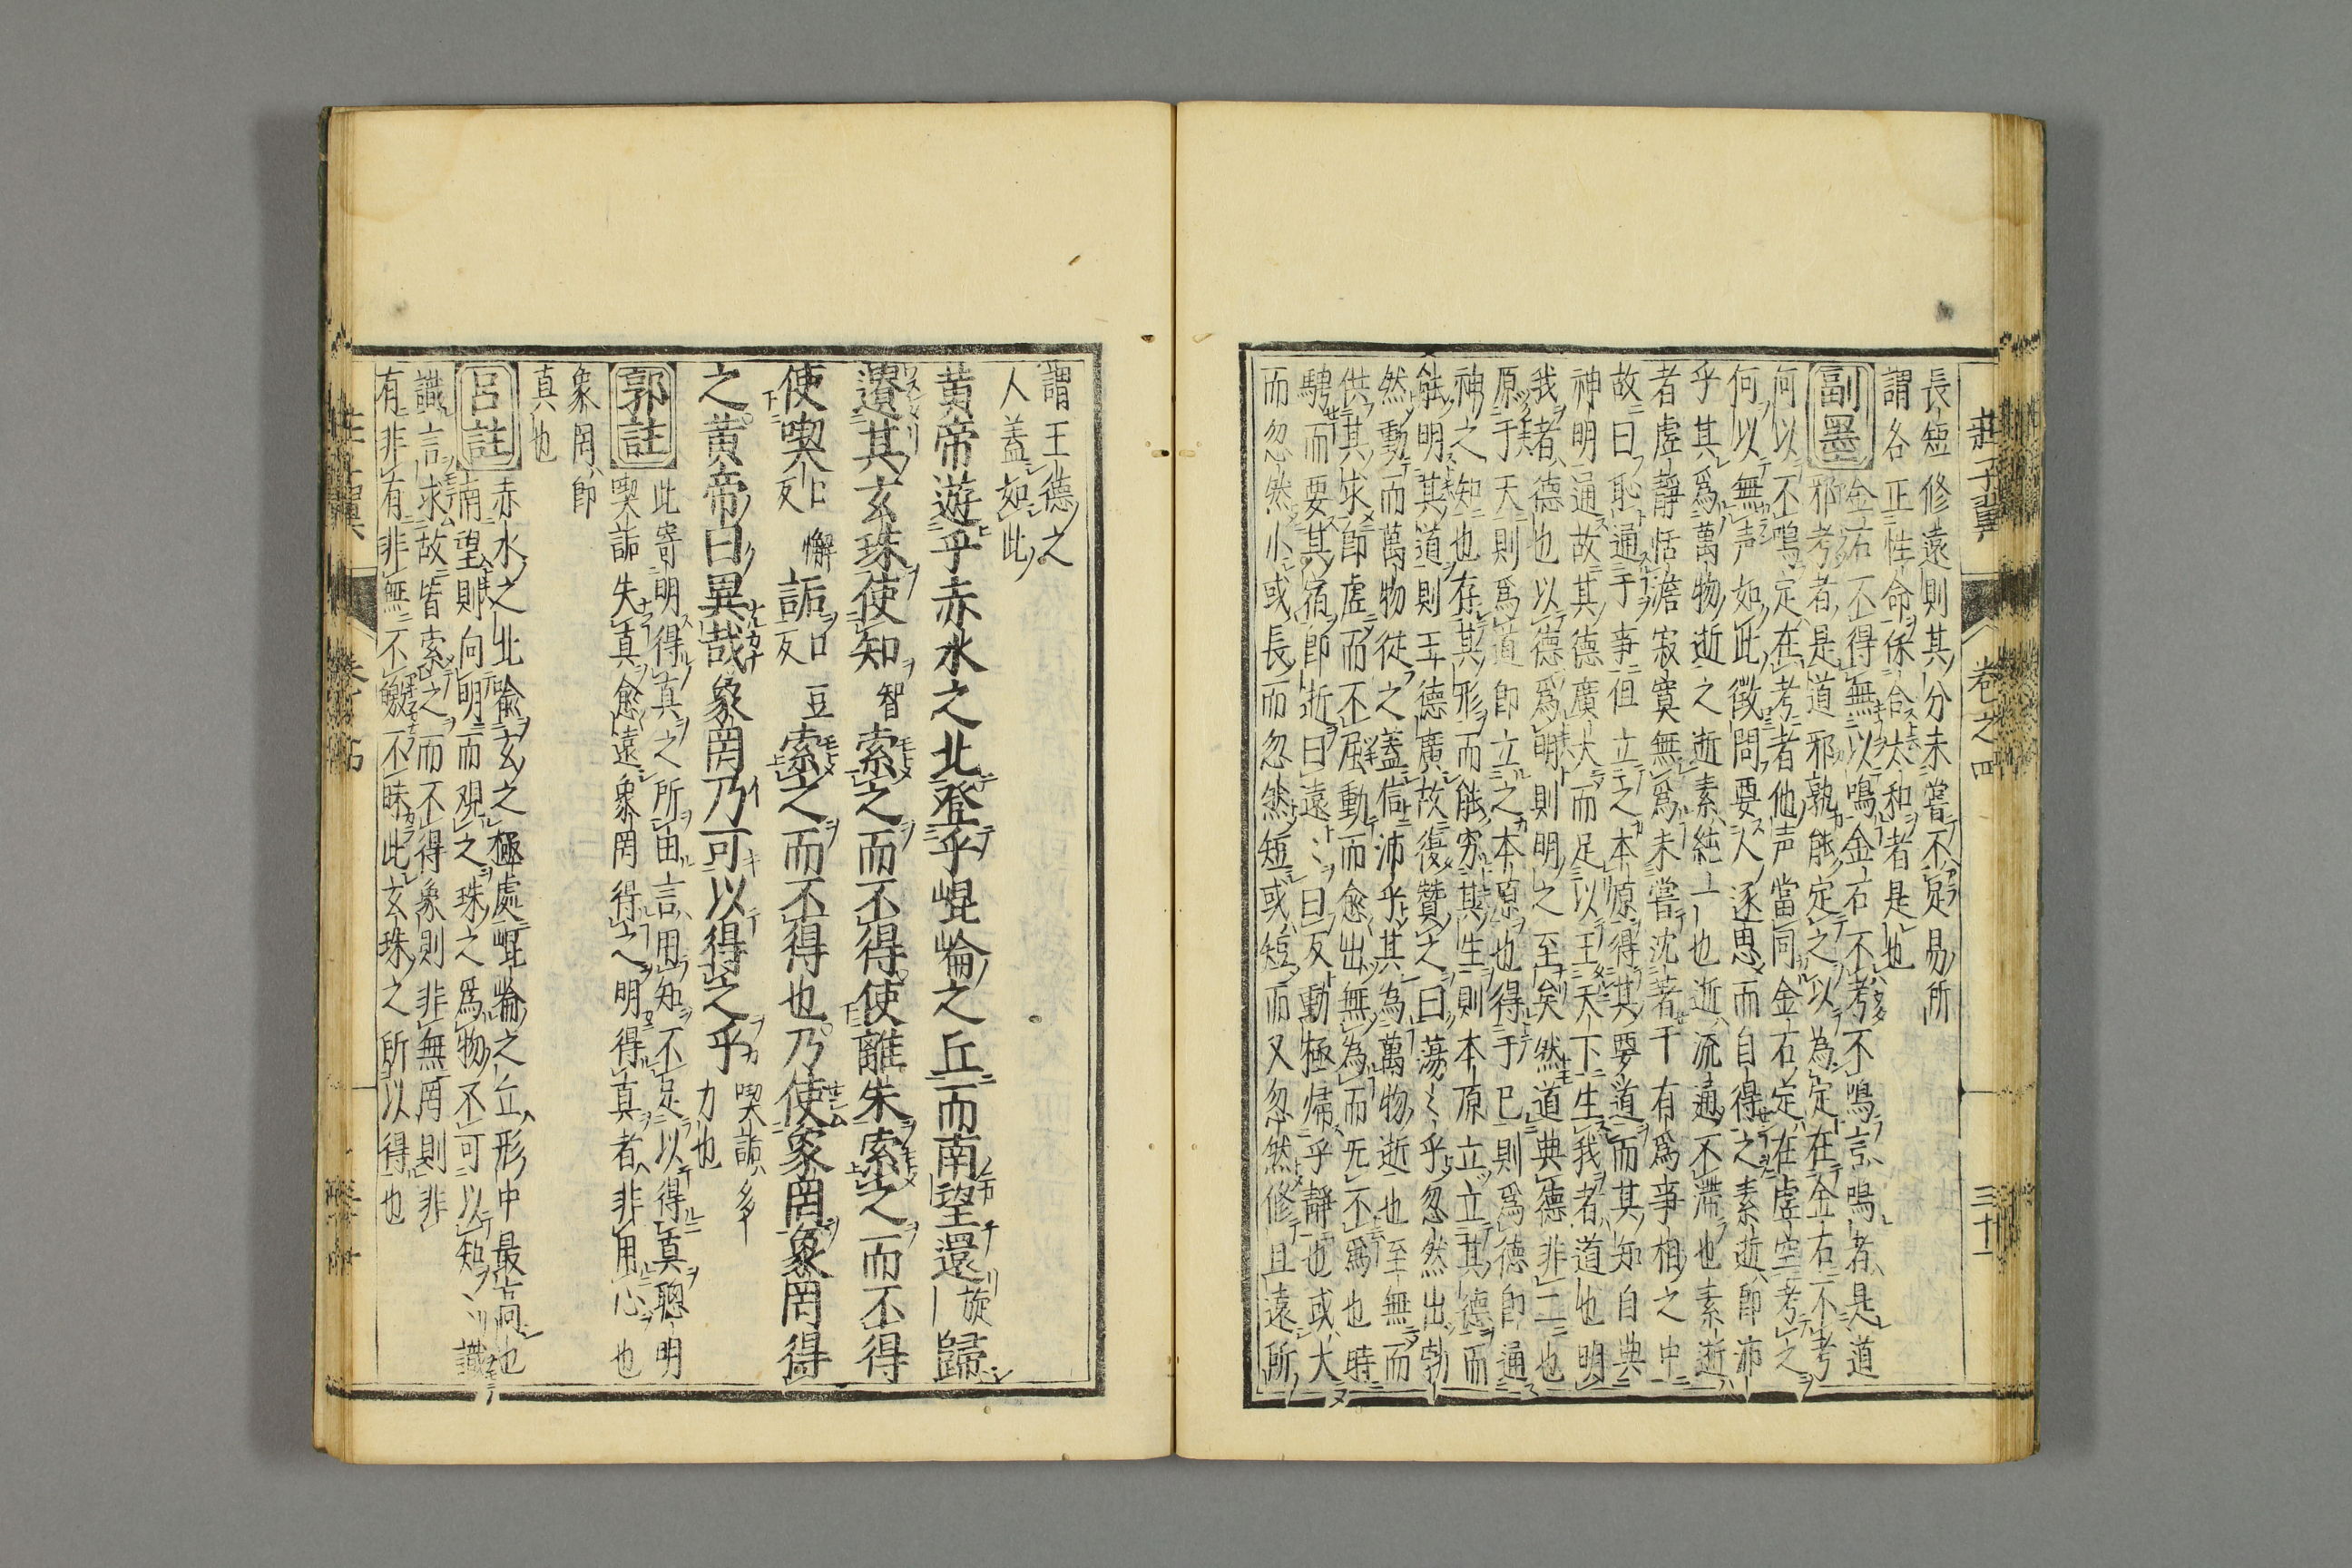 莊子翼 卷之四 三十一
長短修遠則其分未嘗不定易所
謂各正性命保合太和者是也
副墨 金石不得無以鳴金石不考不鳴言鳴者是道
邪考者是道邪孰能定之以為定在金石不考
何以不鳴定在考者他声當同金石定在虚空考之
何以無声如此徴問要人逐思而自得之素逝即沛
乎其爲萬物逝之逝素純一也逝流通不滯也素逝
者虚靜恬澹寂寞無爲未嘗沈著于有爲事相之中
故曰恥通于事但立之本原得其要道而其知自典
神明通故其德廣大而足以王天下生我者道也明
我者德也以德爲明則明之至矣然道典德非二也
原于天則爲道即立之本原也得于已則爲德即通
神之知也存其形而能窮其生則本原立立其德而
能明其道則王德廣故復贊之曰蕩〻乎忽然出勃
然動而萬物從之蓋信沛乎其為萬物逝也至無而
供其求即虚而不屈動而愈出無為而无不爲也時
騁而要其宿即逝曰遠〻曰反動極帰乎靜也或大
而忽然小或長而忽然短或短而又忽然修且遠所
謂王德之
人蓋如此
黄帝遊乎赤水之北登乎崐崘之丘而南望還 旋 歸
遺其玄珠使知 智 索之而不得使離朱索之而不得
使喫 口懈反 詬 口豆反 索之而不得也乃使象罔象罔得
之黄帝曰異哉象罔乃可以得之乎 喫詬多力也
郭註 此寄明得真之所由言用知不足以得真聰明
喫詬失真愈遠象罔得之明得真者非用心也
象罔即
真也
呂註 赤水之北喩玄之極處崐崘之丘形中最高也
南望則向明而觀之珠之爲物不可以知〻識
識言求故皆索之而不得象則非無罔則非
有非有非無不皦不昧此玄珠之所以得也